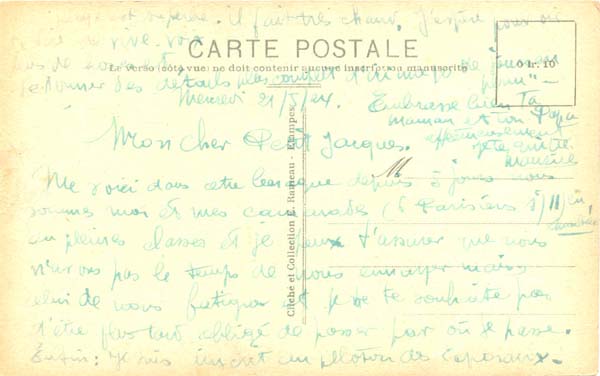 est superbe. Il fait très chaud. J'espère pouvoir
de vive-voix
CARTE POSTALE
Le verso (côté vue) ne doit contenir aucune inscription manuscrite
0 fr. 10
te donner des détails plus complets
Mercredi 21/5/24.
Embrasse bien Ta
maman et ton Papa
affectueusement
Mon cher Petit Jacques.
Me voici dans cette depuis 5 jours nous
sommes moi et mes camarades (6 Parisiens s/11) en
chambrée
en pleines classes et je peux t'assurer que nous
n'avons pas le temps de nous ennuyer mais
celui de nous fatiguer et je ne te souhaite pas
d'être plus tard obligé de passer par où je passe.
Enfin: Je suis inscrit au peloton des Caporaux.
Cliché et Collection E. Rameau - Etampes